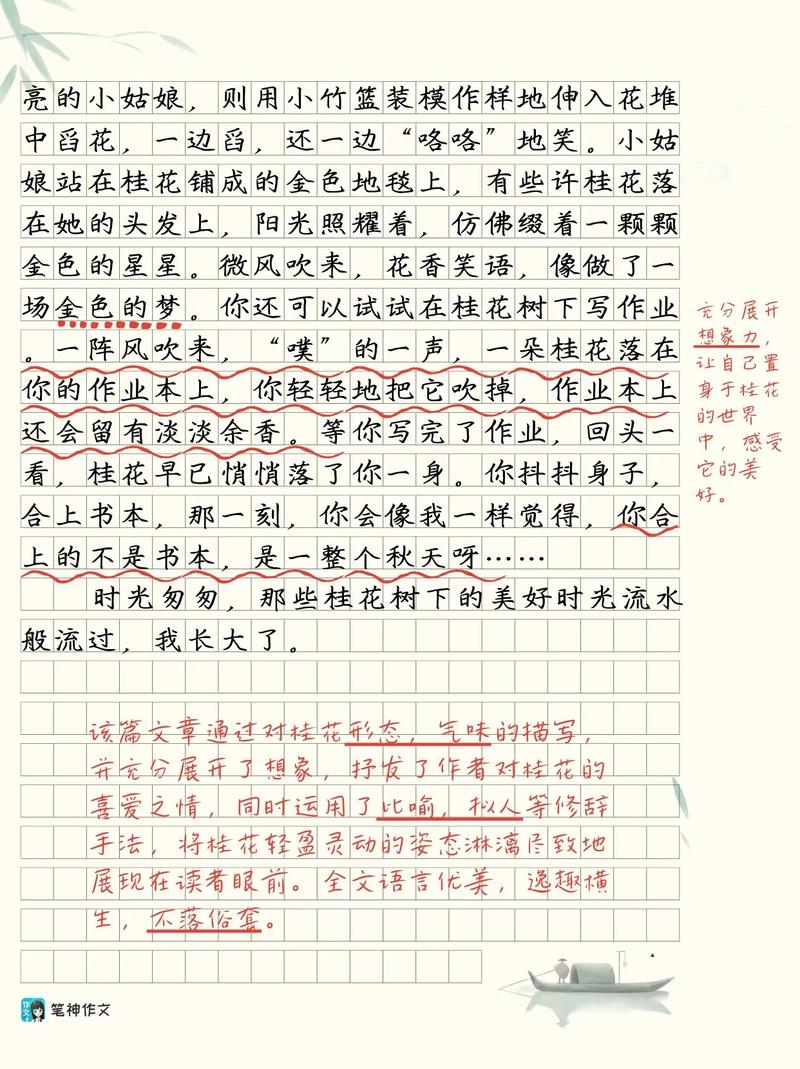 亮的小姑娘，则用小竹篮装模作样地伸入花堆
中舀花，一边舀，还一边“咯咯”地笑。小姑
娘站在桂花铺成的金色地毯上，有些许桂花落
在她的头发上，阳光照耀着，仿佛缀着一颗颗
金色的星星。微风吹来，花香笑语，像做了一
场金色的梦。你还可以试试在桂花树下写作业
。一阵风吹来，“噗”的一声，一朵桂花落在
你的作业本上，你轻轻地把它吹掉，作业本上
还会留有淡淡余香。等你写完了作业，回头一
看，桂花早已悄悄落了你一身。你抖抖身子，
合上书本，那一刻，你会像我一样觉得，你合
上的不是书本，是一整个秋天呀……
时光匆匆，那些桂花树下的美好时光流水
般流过，我长大了。
充分展开
想象力，
让自己置
身于桂花
的世界
中，感受
它的美
好。
该篇文章通过对桂花形态，气味的描写，
并充分展开了想象，抒发了作者对桂花的
喜爱之情，同时运用了比喻，拟人等修辞
手法，将桂花轻盈灵动的姿态淋漓尽致地
展现在读者眼前。全文语言优美，逸趣横
生，不落俗套。
作文
笔神作文